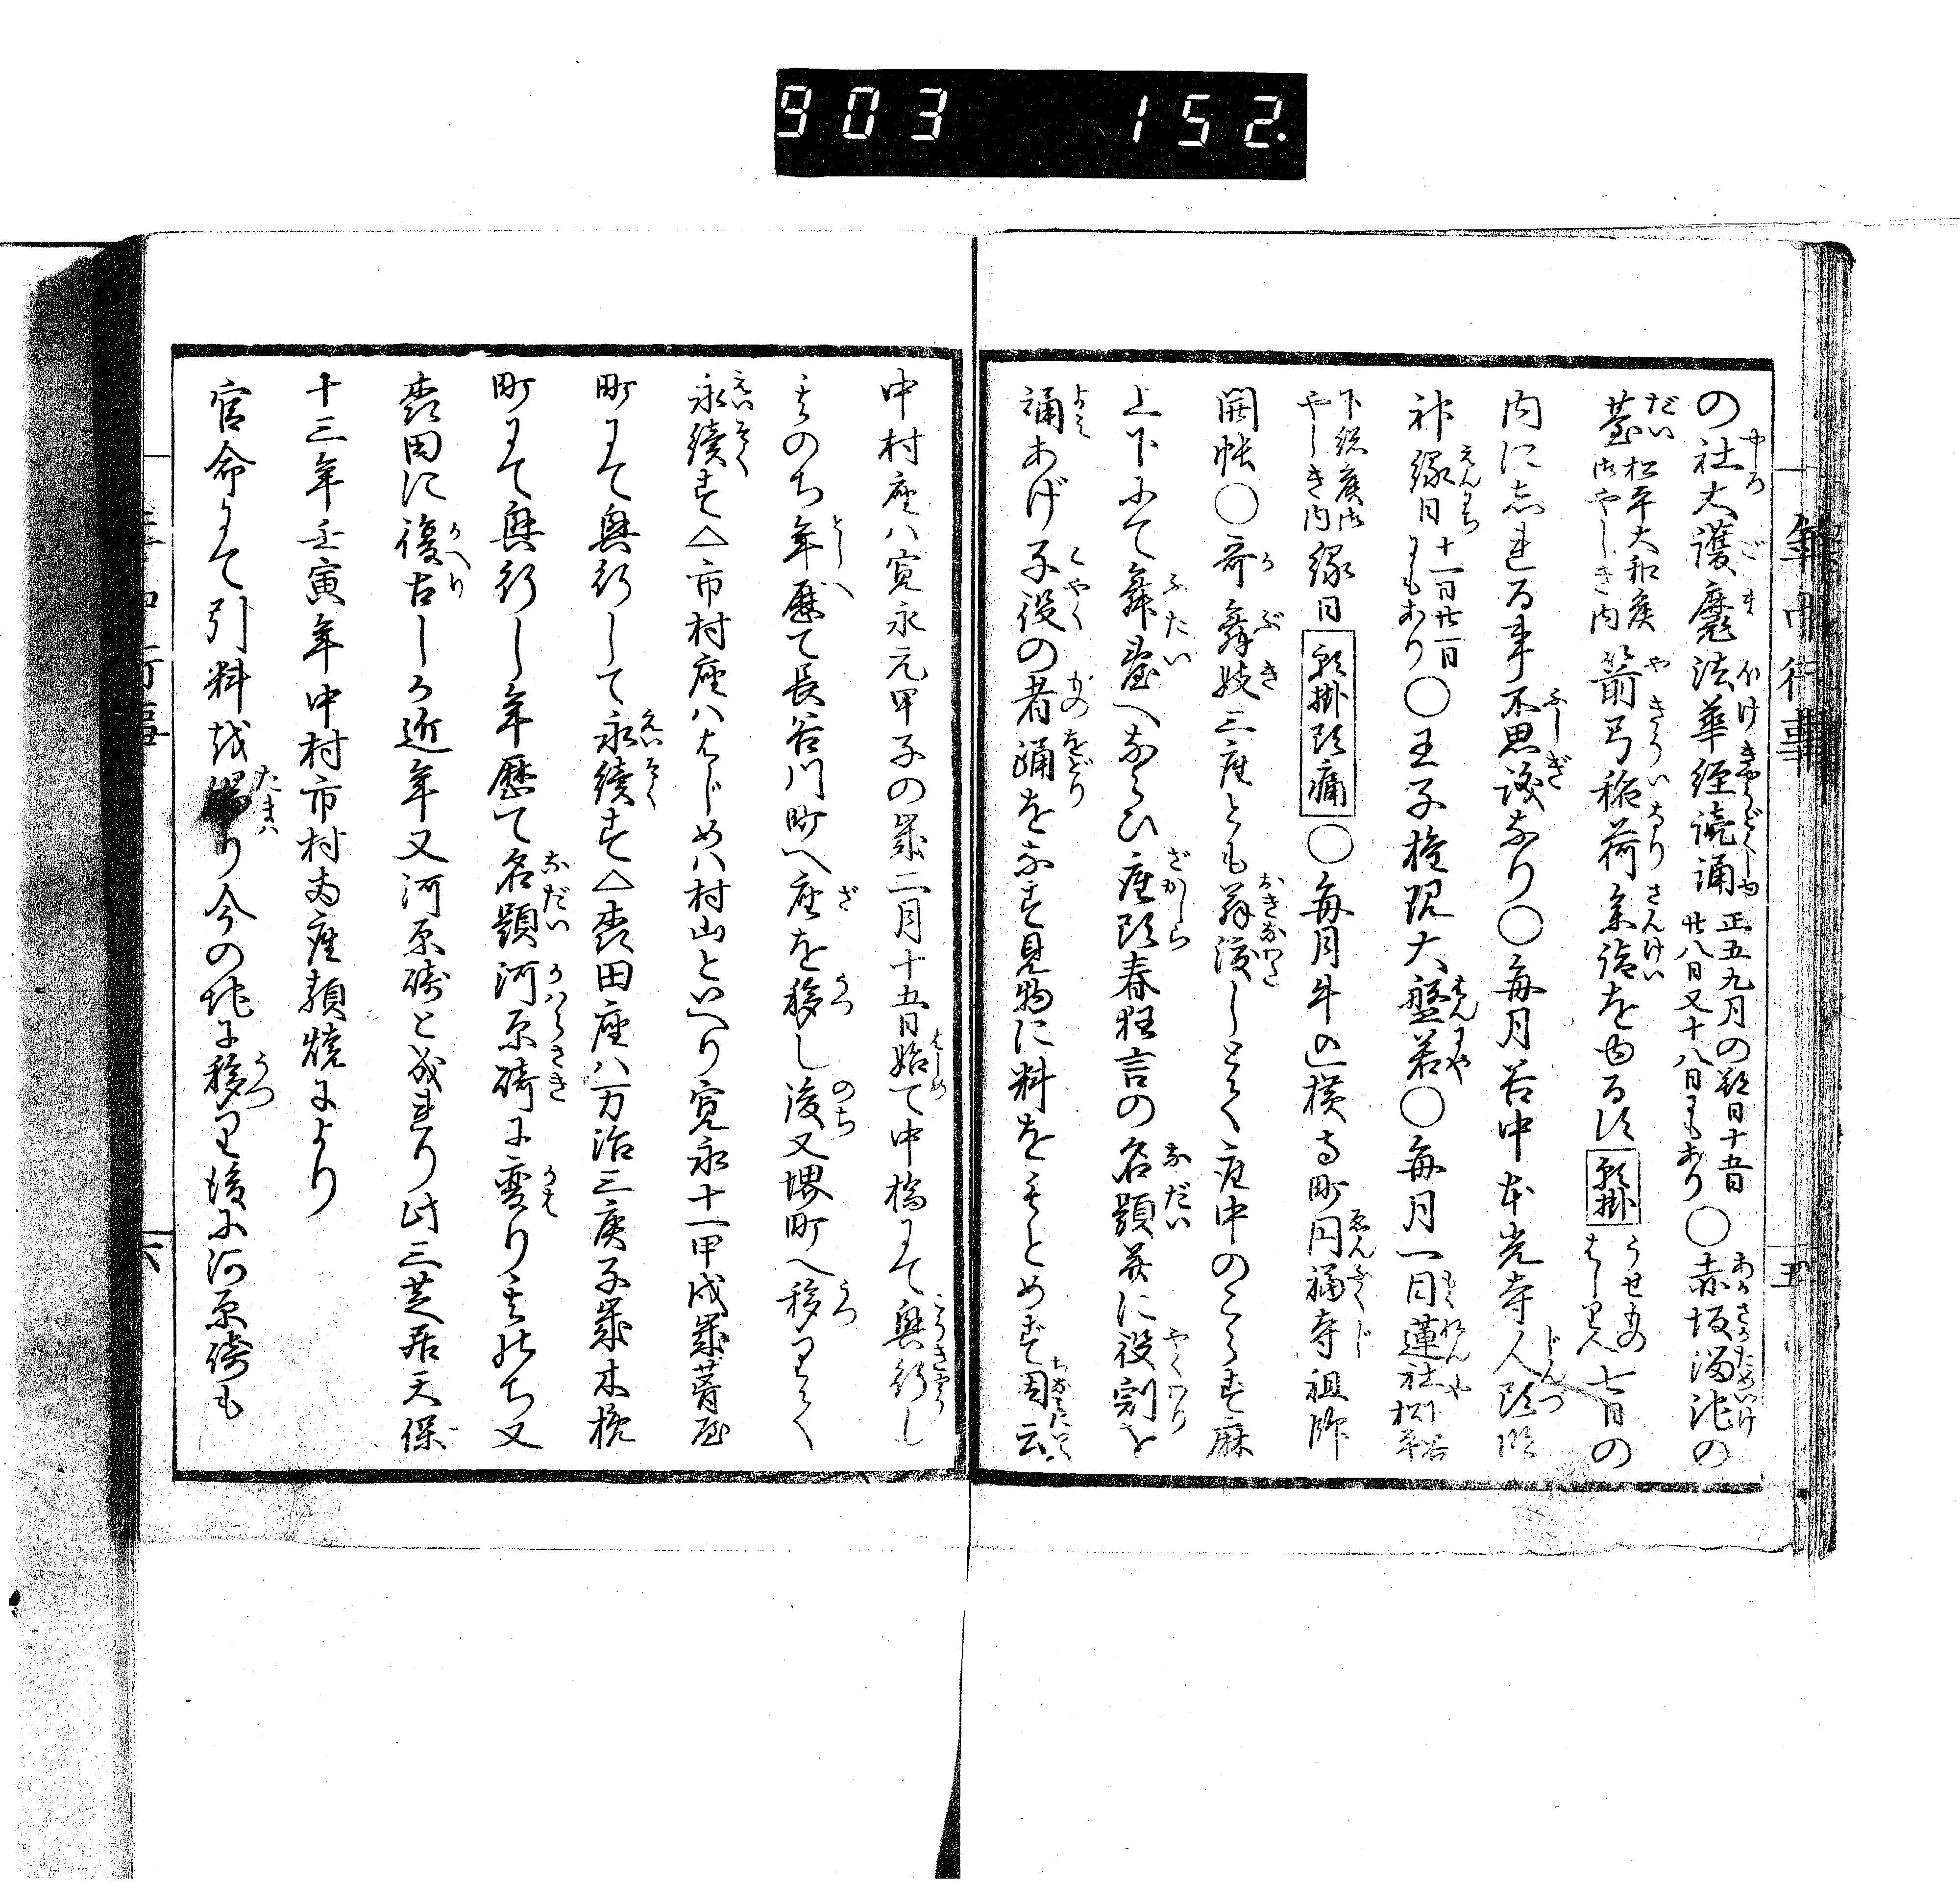 903 152.
の社大護麾法華経読誦正五九月の朔日十五日廿八日又十八日にもあり〇赤坂溜池の
臺松平大和侯御やしき内箭弓稲荷参詣をゆるす願掛うせものはしりん七日の
内にしれる事不思議なり〇毎月谷中本光寺人頭明
神縁日十一日廿一日にもあり〇王子権現大盤若〇毎月一日蓮社下谷松平
下総侯御やしき内縁日願掛頭痛〇毎月牛込横寺町円福寺祖師
開帳〇哥舞妓三座とも翁渡しとて座中のこらす麻
上下にて舞臺へならひ座頭春狂言の名題并に役割を
誦あげ子役の者踊をなす見物に料をもとめず因云
中村座ハ寛永元甲子の歳二月十五日始て中橋にて興行し
其のち年歴て長谷川町へ座を移し後又堺町へ移りて
永續す△市村座ハはじめハ村山といへり寛永十一甲戌歳葺屋
町にて興行して永續す△森田座ハ万治三庚子歳木挽
町にて興行し年歴て名題河原崎に変り其のち又
森田に復古しか近年又河原崎と成れり此三芝居天保
十三年壬寅年中村市村両座類焼により
官命にて引料を賜り今の地に移り後に河原崎も